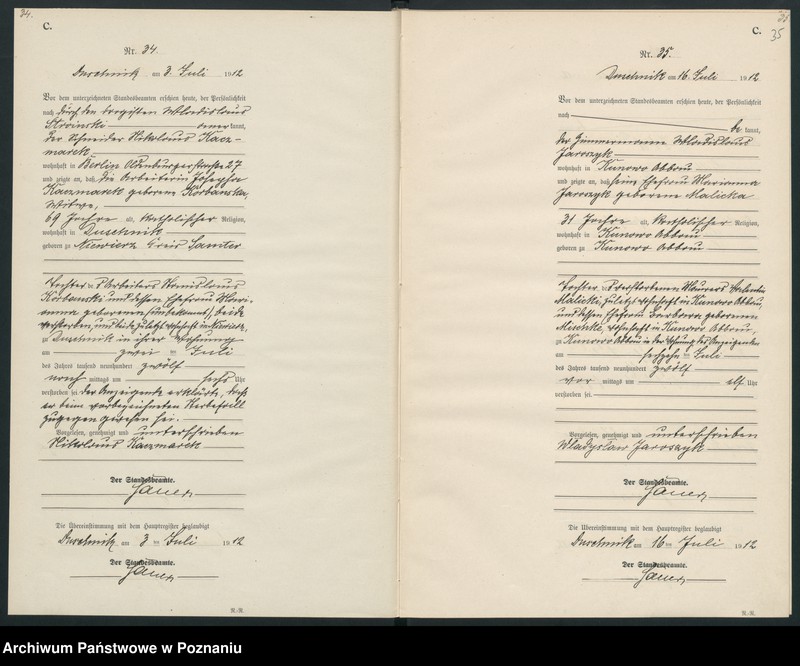 34.
C.
Nr. 34.
Duschnik am 3. Juli 1912
Vor dem unterzeichneten Standesbeamten erschien heute, der Persönlichkeit
nach durch den Wladislaus
kannt,
der Schneider Nikolaus Kacz-
marek
wohnhaft in Berlin Oldenburgerstrasse 27
und zeigte an, daß die Arbeiterin Josepha
Kaczmarek geborene Korbanska,
Witwe,
69 Jahre alt, katholischer Religion,
wohnhaft in Duschnik
geboren zu Niewierz Kreis Samter
Tochter des Arbeiters Stanislaus
Korbanski und dessen Ehefrau Mari-
anna geborenen (unbekannt) beide
verstorben, und beide zuletzt wohnhaft in Niewierz,
zu Duschnik in ihrer Wohnung
am zwei ten Juli
des Jahres tausend neunhundert zwölf
nach mittags um sechs Uhr
verstorben sei. Der Anzeigende erklärte, dass
er beim vorbezeichneten Sterbefall
zugegen gewesen sei.
Vorgelesen, genehmigt und unterschrieben
Nikolaus Kaczmarek
Der Standesbeamte.
Die Übereinstimmung mit dem Hauptregister beglaubigt
Duschnik am 3 ten Juli 1912
Der Standesbeamte.
35
C.
35
Nr. 35.
Duschnik am 16. Juli 1912
Vor dem unterzeichneten Standesbeamten erschien heute, der Persönlichkeit
nach
be kannt,
der Zimmermann Wladislaus
Jaroszyk
wohnhaft in Kunowo Abbau
und zeigte an, daß seine Ehefrau Marianna
Jaroszyk geborene Malicka
31 Jahre alt, katholischer Religion,
wohnhaft in Kunowo Abbau
geboren zu Kunowo Abbau
Tochter des verstorbenen Maurers Valentin
Malicki, zuletzt wohnhaft in Kunowo Abbau,
und dessen Ehefrau Barbara geborenen
wohnhaft in Kunowo Abbau,
zu Kunowo Abbau in der Wohnung des Anzeigenden
am sechzehn ten Juli
des Jahres tausend neunhundert zwölf
vor mittags um elf Uhr
verstorben sei.
Vorgelesen, genehmigt und unterschrieben
Wladyslaw Jaroszyk
Der Standesbeamte.
Die Übereinstimmung mit dem Hauptregister beglaubigt
Duschnik am 16 ten July 1912
Der Standesbeamte.
Archiwum Państwowe w Poznaniu